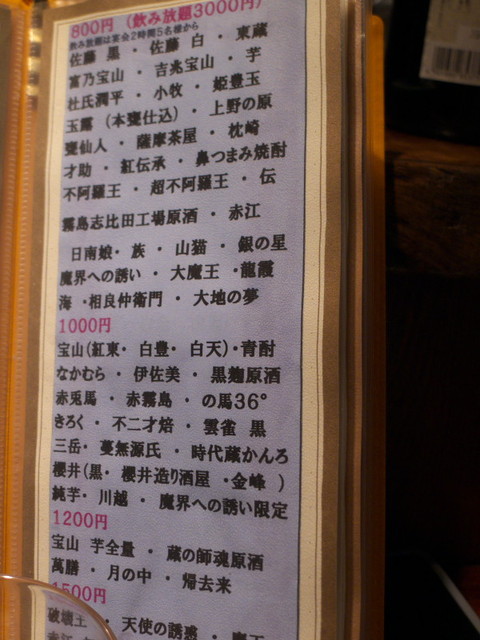 800円 (飲み放題3000円)
飲み放題は宴会2時間5名様から
佐藤 黒 ・ 佐藤 白 ・ 東蔵
富乃宝山 ・ 吉兆宝山 ・ 芋
杜氏潤平 ・ 小牧 ・ 姫豊玉
玉露 (本甕仕込) ・ 上野の原
甕仙人 ・ 薩摩茶屋 ・ 枕崎
才助 ・ 紅伝承 ・ 鼻つまみ焼酎
不阿羅王 ・ 超不阿羅王 ・ 伝
霧島志比田工場原酒 ・ 赤江
日南娘・ 族 ・ 山猫 ・ 銀の星
魔界への誘い ・ 大魔王 ・龍霞
海 ・相良仲衛門 ・ 大地の夢
1000円
宝山(紅東・ 白豊・ 白天)・青酎
なかむら ・ 伊佐美 ・ 黒麹原酒
赤兎馬 ・ 赤霧島 ・ の馬36°
きろく ・ 不二才焙 ・ 雲雀 黒
三岳・ 蔓無源氏 ・ 時代蔵かんろ
櫻井(黒・ 櫻井造り酒屋 ・金峰 )
純芋・ 川越 ・ 魔界への誘い限定
1200円
宝山 芋全量 ・ 蔵の師魂原酒
萬膳 ・ 月の中 ・ 帰去来
1500円
破壊王 ・ 天使の誘惑 ・ 魔王